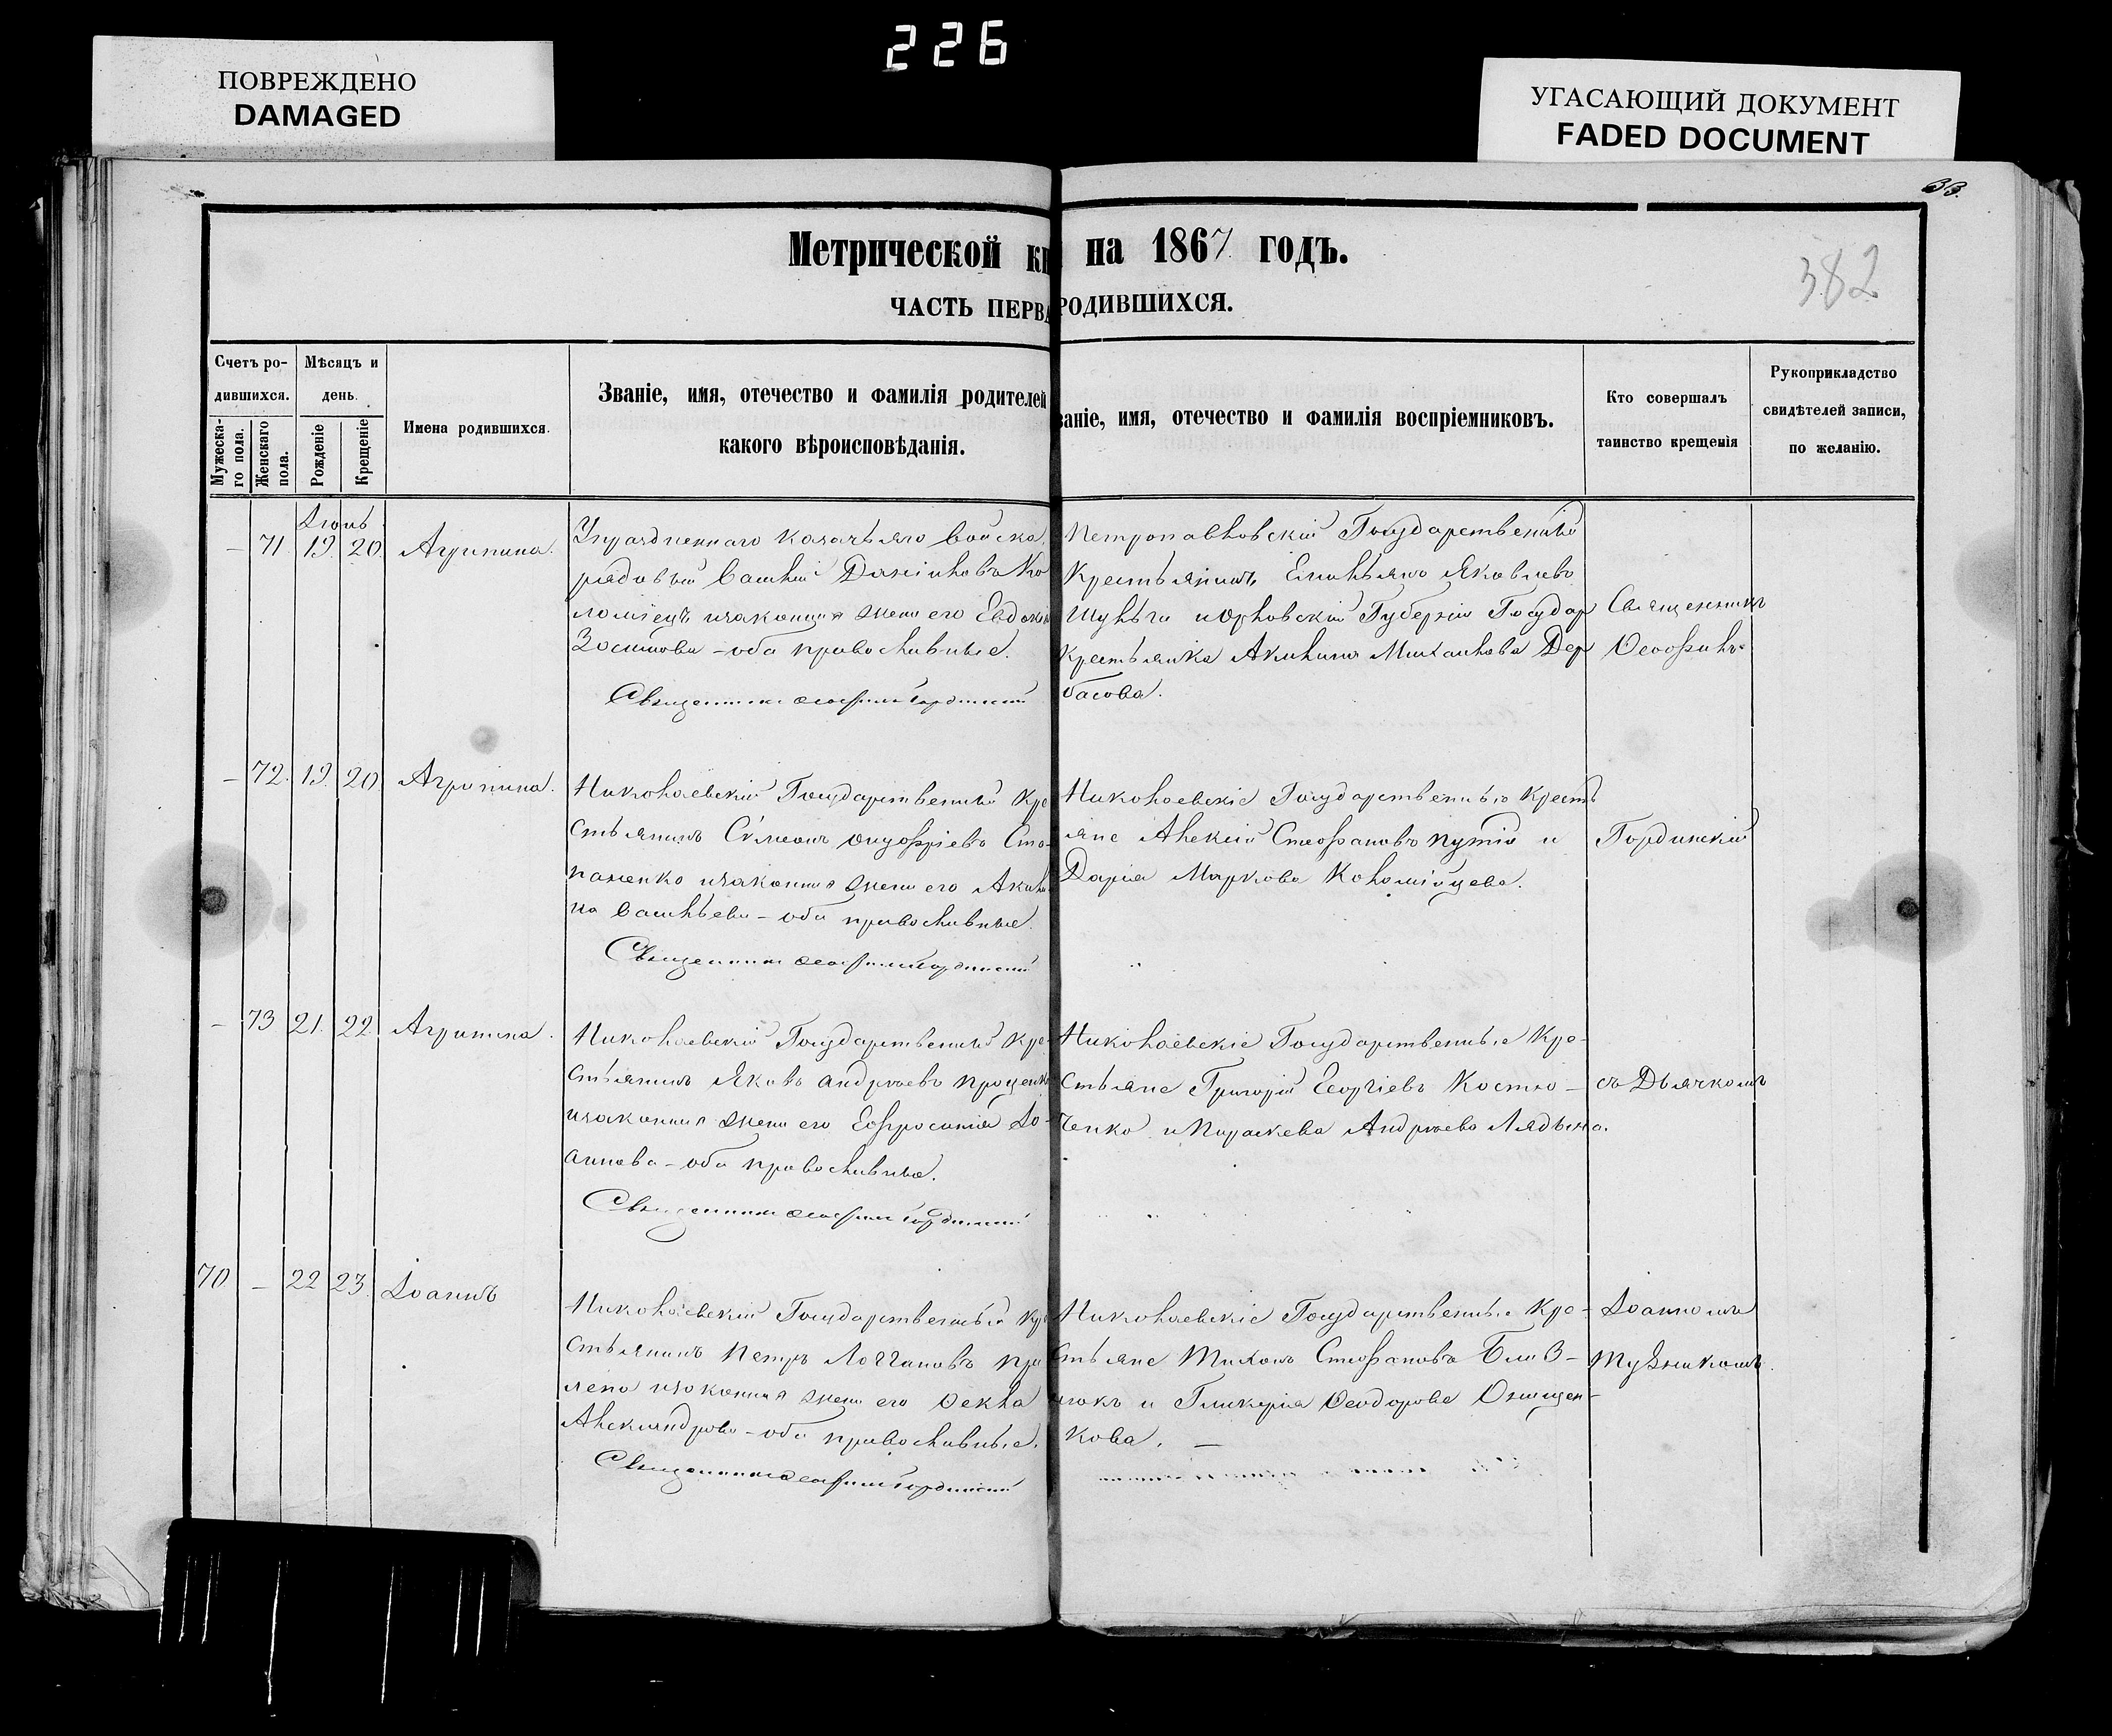 226
ПОВРЕЖДЕНО
DAMAGED
УГАСАЮЩИЙ ДОКУМЕНТ
FADED DOCUMENT
33.
382
Метрической кн на 1867 годъ.
ЧАСТЬ ПЕРВА РОДИВШИХСЯ.
Счетъ ро-
дившихся.
Мужеска-
го пола.
Женскаго
пола.
Мѣсяцъ и
день.
Рожденіе
Крещеніе
Имена родившихся.
Званіе, имя, отечество и фамилія родителей
какого вѣроисповѣданія.
ваніе, имя, отечество и фамилія воспріемниковъ.
Кто совершалъ
таинство крещенія
Рукоприкладство
свидѣтелей записи,
по желанію.
Іюнь
– 71. 19. 20. Агрипина.
Упраздненнаго казачьяго войска
рядовый Василій Даніиловъ Ко
ломіецъ и законная жена его Евдокія
Зосимова – оба православные.
Священникъ Ѳеофилъ Гординскій
Петропавловскій Государственный
Крестьянинъ Емиліянъ Яковлевъ
Шульга и Орловскій Губерніи Государ
Крестьянка Акилина Михаилова Дер
басова.
– 72. 19. 20. Агрипина.
Николаевскій Государственный Кре
стьянинъ Сѵмеонъ Онуфріевъ Сте-
паненко и законная жена его Акили
на Васильева – оба православные.
Священникъ Ѳеофилъ Гординскій
Николаевскіе Государственные Кресть
яне Алексій Стефановъ Путій и
Дарія Маркова Коломійцева.
– 73 21. 22. Агрипина.
Николаевскій Государственный Кре-
стьянинъ Яковъ Андреевъ Проценко
и законная жена его Евфросинія Іо-
аннова – оба православные.
Священникъ Ѳеофилъ Гординскій
Николаевскіе Государственные Кре-
стьяне Григорій Георгіевъ Костю-
ченко и Параскева Андреева Лядына.
70 – 22 23. Іоаннъ
Николаевскій Государственный Кре
стьянинъ Петръ Логгиновъ
и законная жена его Ѳекла
Александрова – оба православные.
Священникъ Ѳеофилъ Гординскій
Николаевскіе Государственные Кре-
стьяне Тихонъ Стефановъ Близ-
нюкъ и Гликерія Ѳеодорова Онищен-
кова. –
Священникъ
Ѳеофилъ
Гординскій
съ Дьячкомъ
Іоанномъ